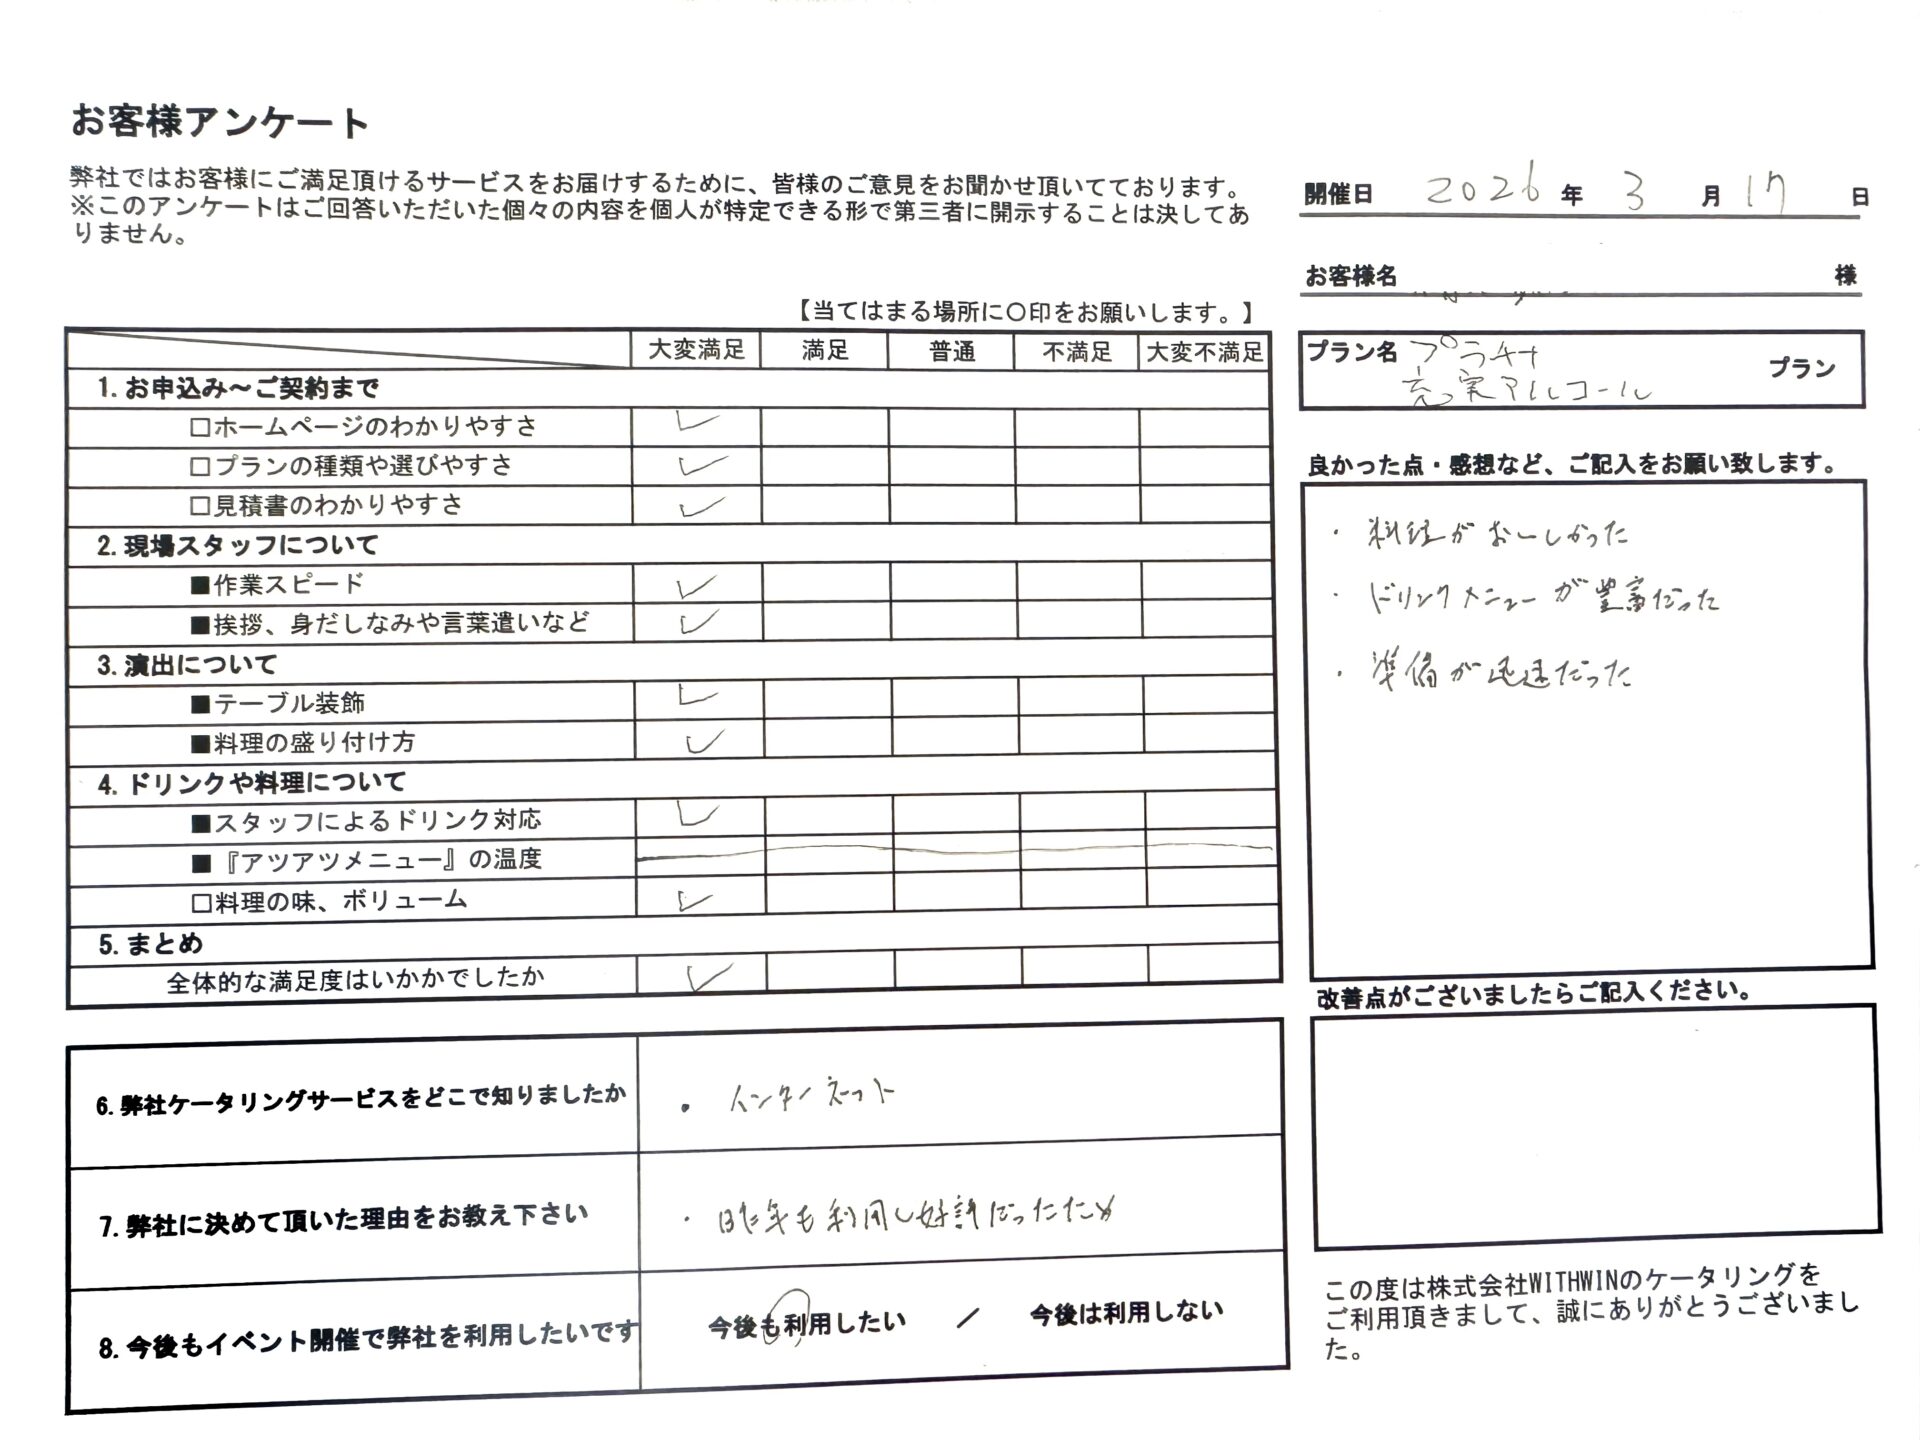 お客様アンケート
弊社ではお客様にご満足頂けるサービスをお届けするために、皆様のご意見をお聞かせ頂いてております。
※このアンケートはご回答いただいた個々の内容を個人が特定できる形で第三者に開示することは決してあ
りません。
開催日 2026 年 3 月 17 日
お客様名 様
【当てはまる場所に〇印をお願いします。】
プラン名 プラチナ プラン
充実アルコール
大変満足 満足 普通 不満足 大変不満足
1.お申込み～ご契約まで
□ホームページのわかりやすさ ✓
□プランの種類や選びやすさ ✓
□見積書のわかりやすさ ✓
2.現場スタッフについて
■作業スピード ✓
■挨拶、身だしなみや言葉遣いなど ✓
3.演出について
■テーブル装飾 ✓
■料理の盛り付け方 ✓
4.ドリンクや料理について
■スタッフによるドリンク対応 ✓
■『アツアツメニュー』の温度
□料理の味、ボリューム ✓
5.まとめ
全体的な満足度はいかかでしたか ✓
良かった点・感想など、ご記入をお願い致します。
・料理がおいしかった
・ドリンクメニューが豊富だった
・準備が迅速だった
改善点がございましたらご記入ください。
6.弊社ケータリングサービスをどこで知りましたか
・インターネット
7.弊社に決めて頂いた理由をお教え下さい
・昨年も利用し好評だったため
8.今後もイベント開催で弊社を利用したいです
今後も利用したい ／ 今後は利用しない
この度は株式会社WITHWINのケータリングを
ご利用頂きまして、誠にありがとうございまし
た。